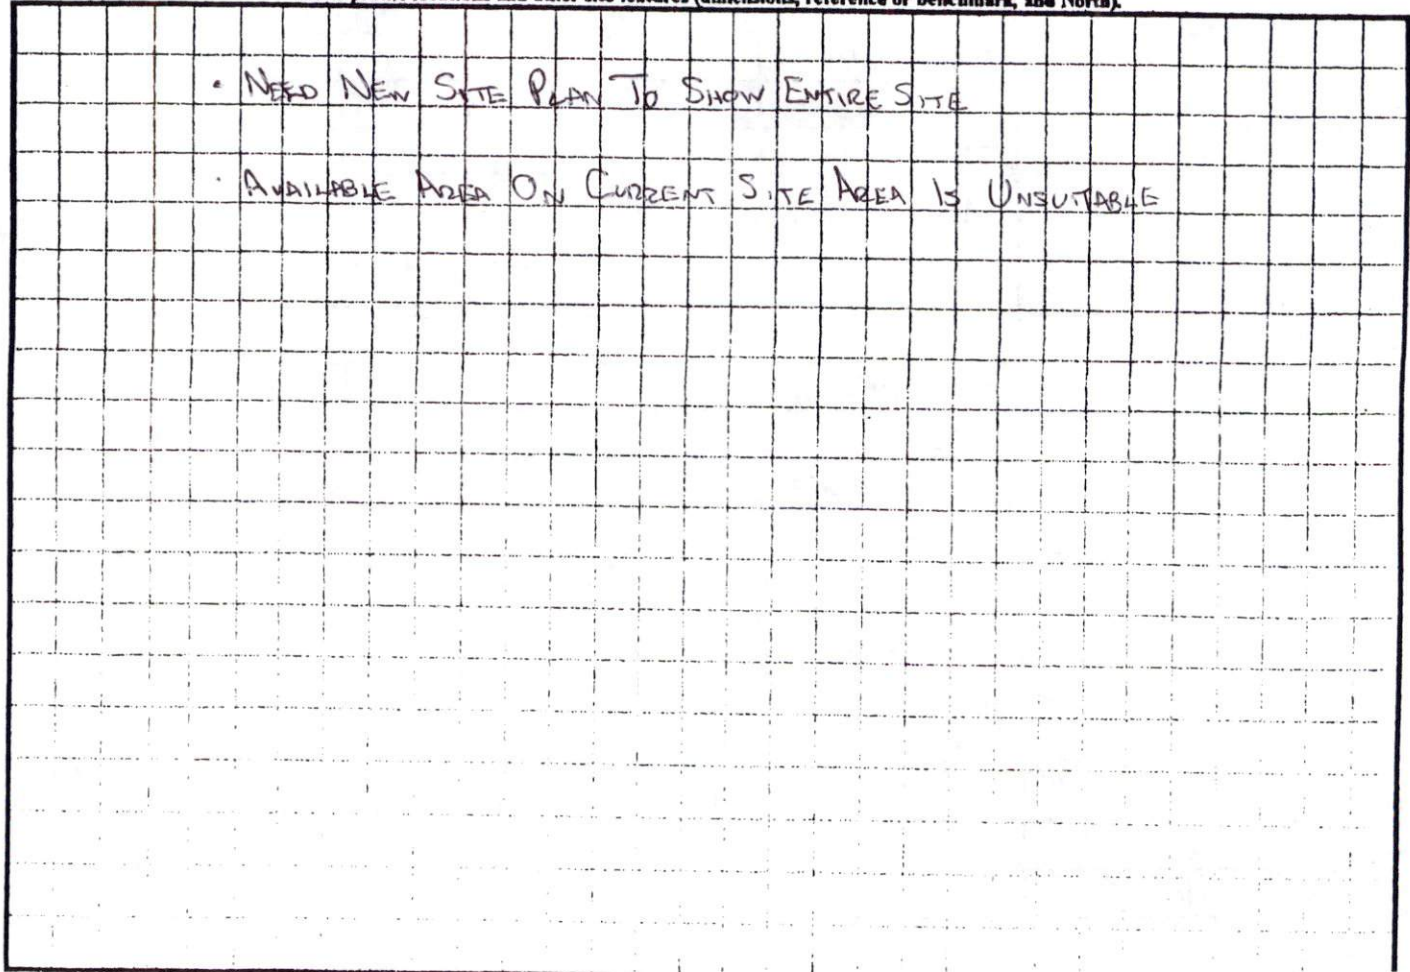 and other site features (dimensions, reference or benchmark, and North).
· NEED NEW SITE PLAN TO SHOW ENTIRE SITE
· AVAILABLE AREA ON CURRENT SITE AREA IS UNSUITABLE